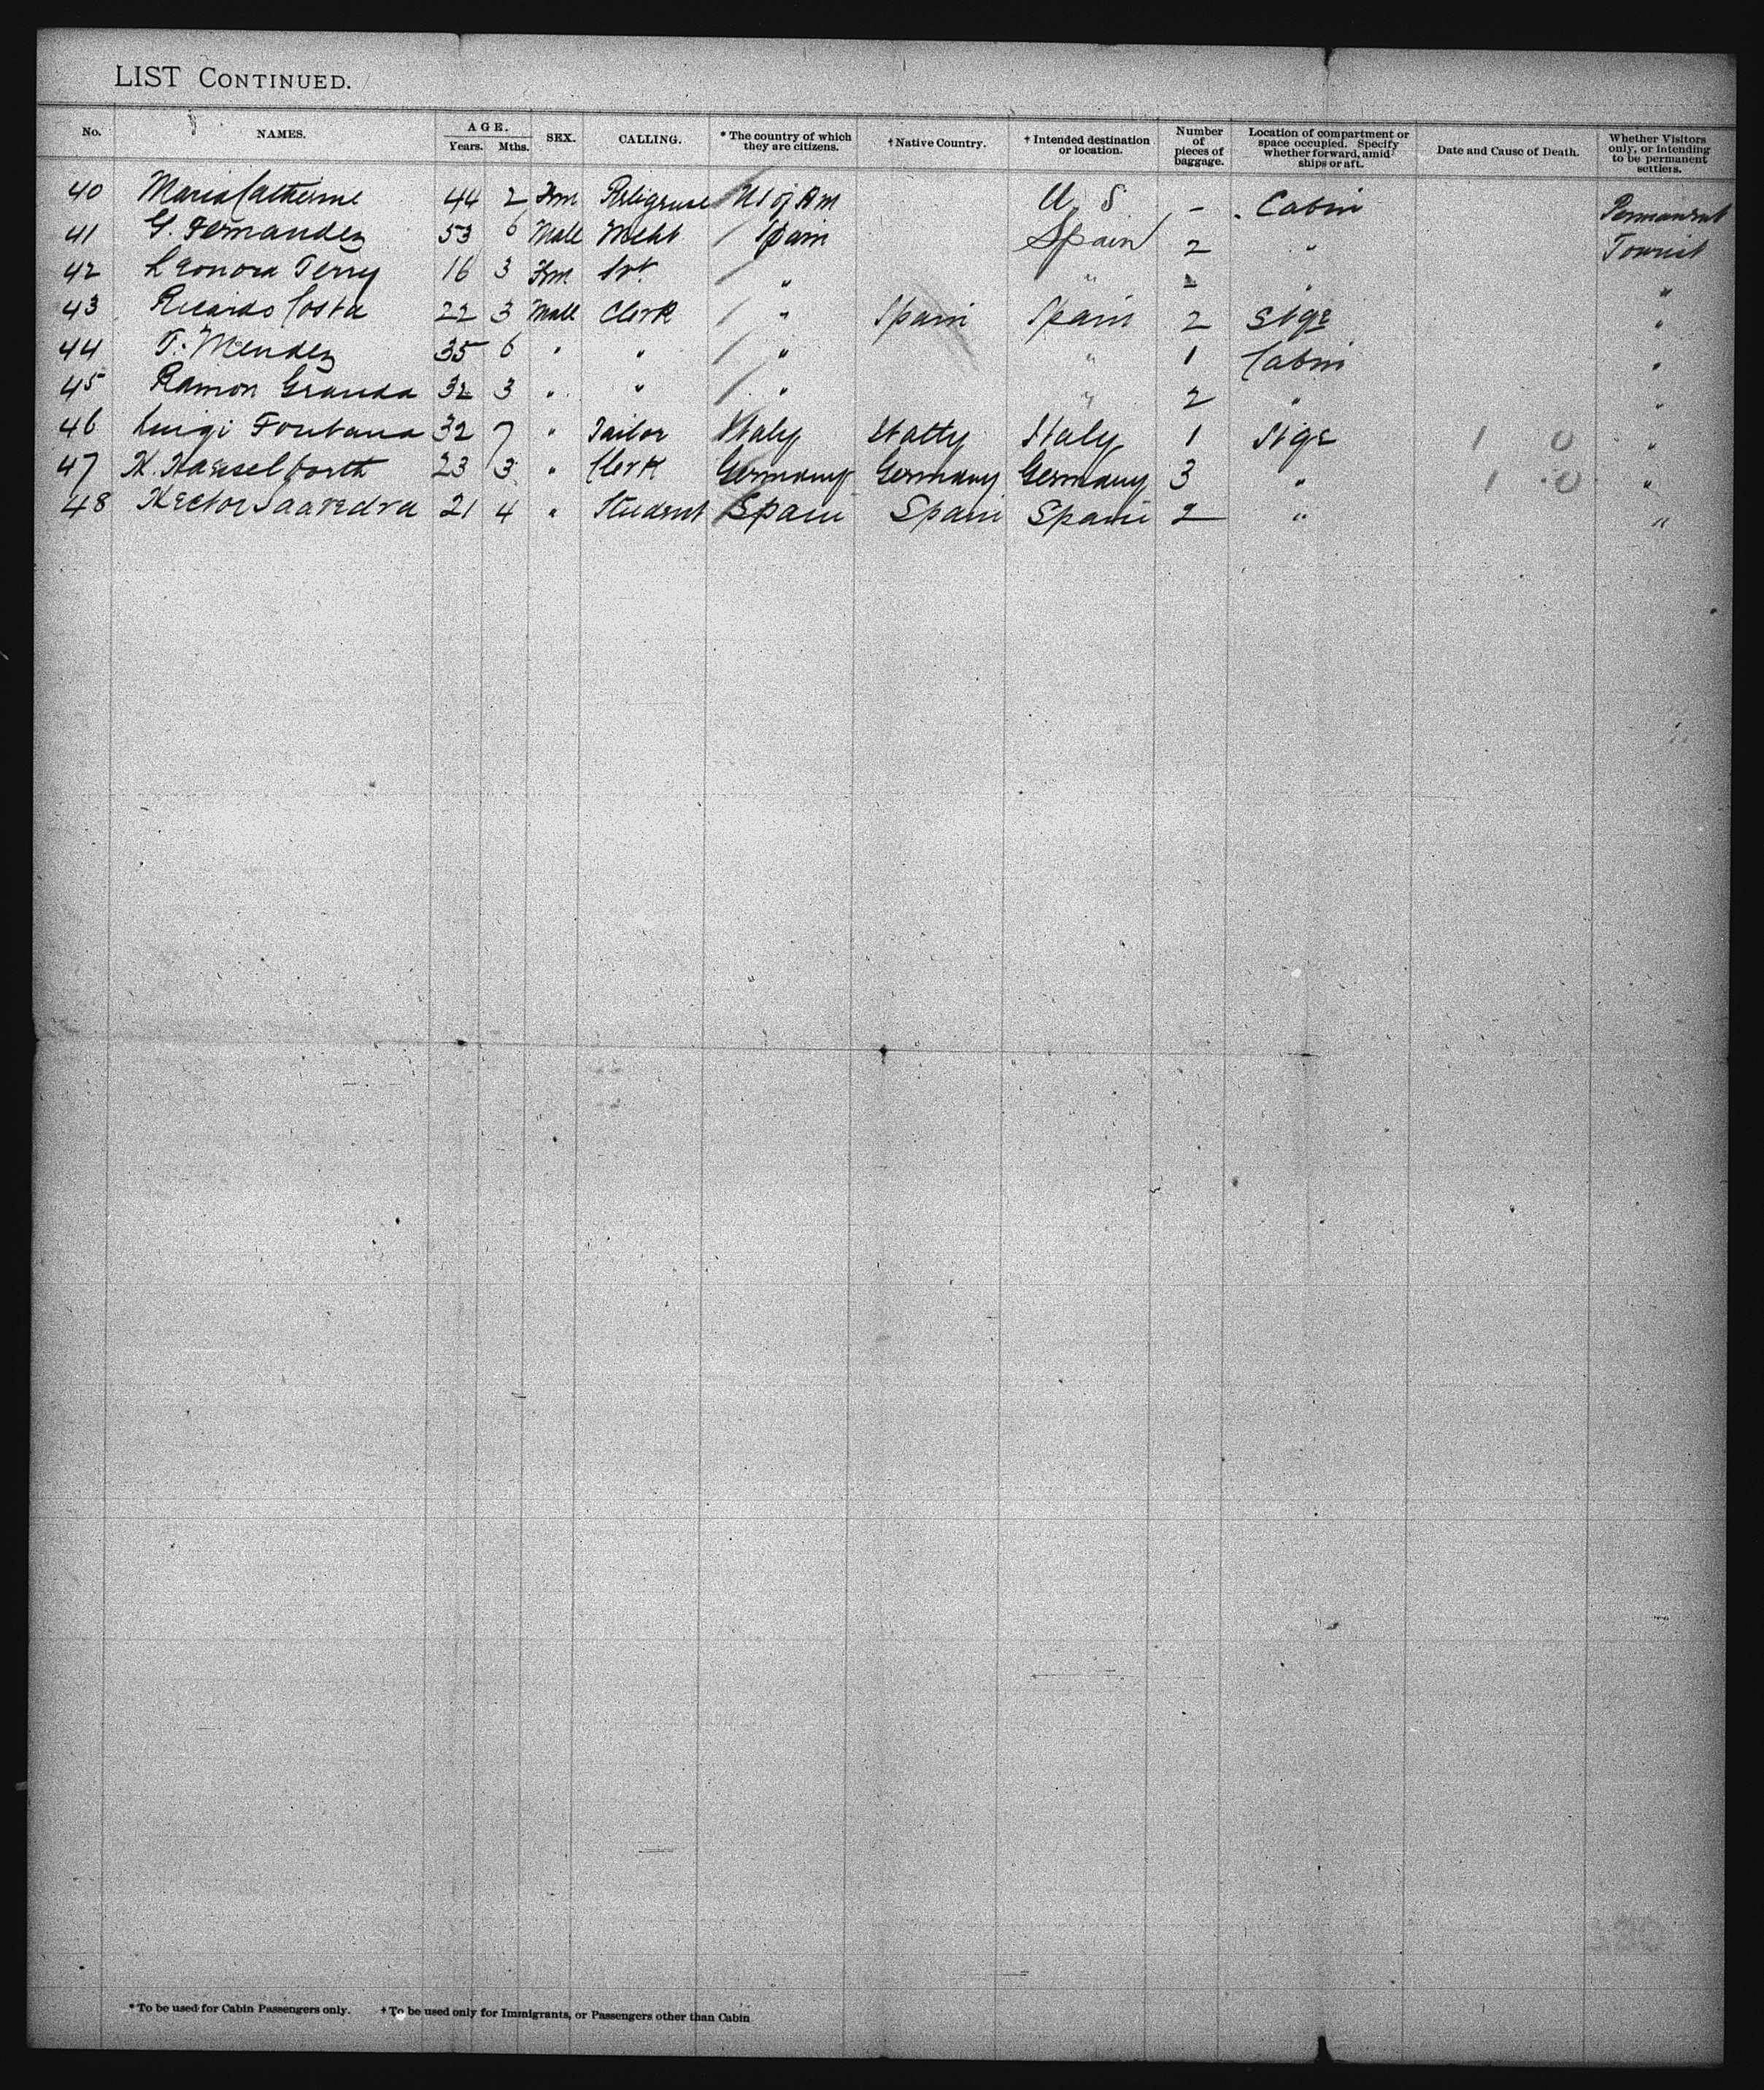 LIST CONTINUED.
No. NAMES. AGE. Years. Mths. SEX. CALLING. * The country of which they are citizens. † Native Country. † Intended destination or location. Number of pieces of baggage. Location of compartment or space occupied. Specify whether forward, amid ships or aft. Date and Cause of Death. Whether Visitors only, or intending to be permanent settlers.
40 Maria Catherine 44 2 Fem Religeuse U S of Am U. S - Cabin Permanent
41 G. Fernandez 53 6 Male Mcht Spain Spain 2 " Tourist
42 Leonora Terry 16 3 Fem " " 2 " "
43 Ricardo Costa 22 3 Male Clerk " Spain Spain 2 Stge "
44 T. Mendez 35 6 " " " " 1 Cabin "
45 Ramon Granda 32 3 " " " " 2 " "
46 Luigi Fontana 32 7 " Tailor Italy Italy Italy 1 Stge 1 0 "
47 H. Haesselbarth 23 3 " Clerk Germany Germany Germany 3 " 1 0 "
48 Hector Saavedra 21 4 " Student Spain Spain Spain 2 " "
* To be used for Cabin Passengers only. † To be used only for Immigrants, or Passengers other than Cabin